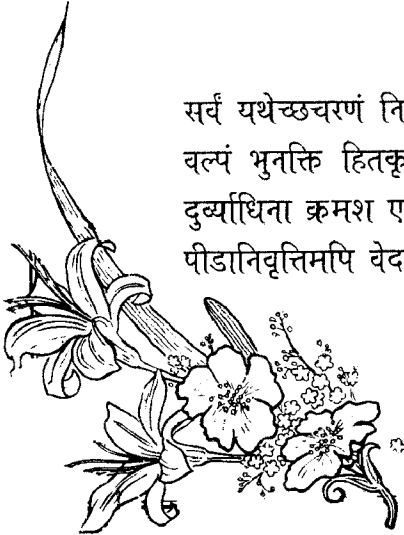 सर्वं यथेच्छचरणं नि
वल्पं भुनक्ति हितकृ
दुर्व्याधिना क्रमश ए
पीडानिवृत्तिमपि वेद